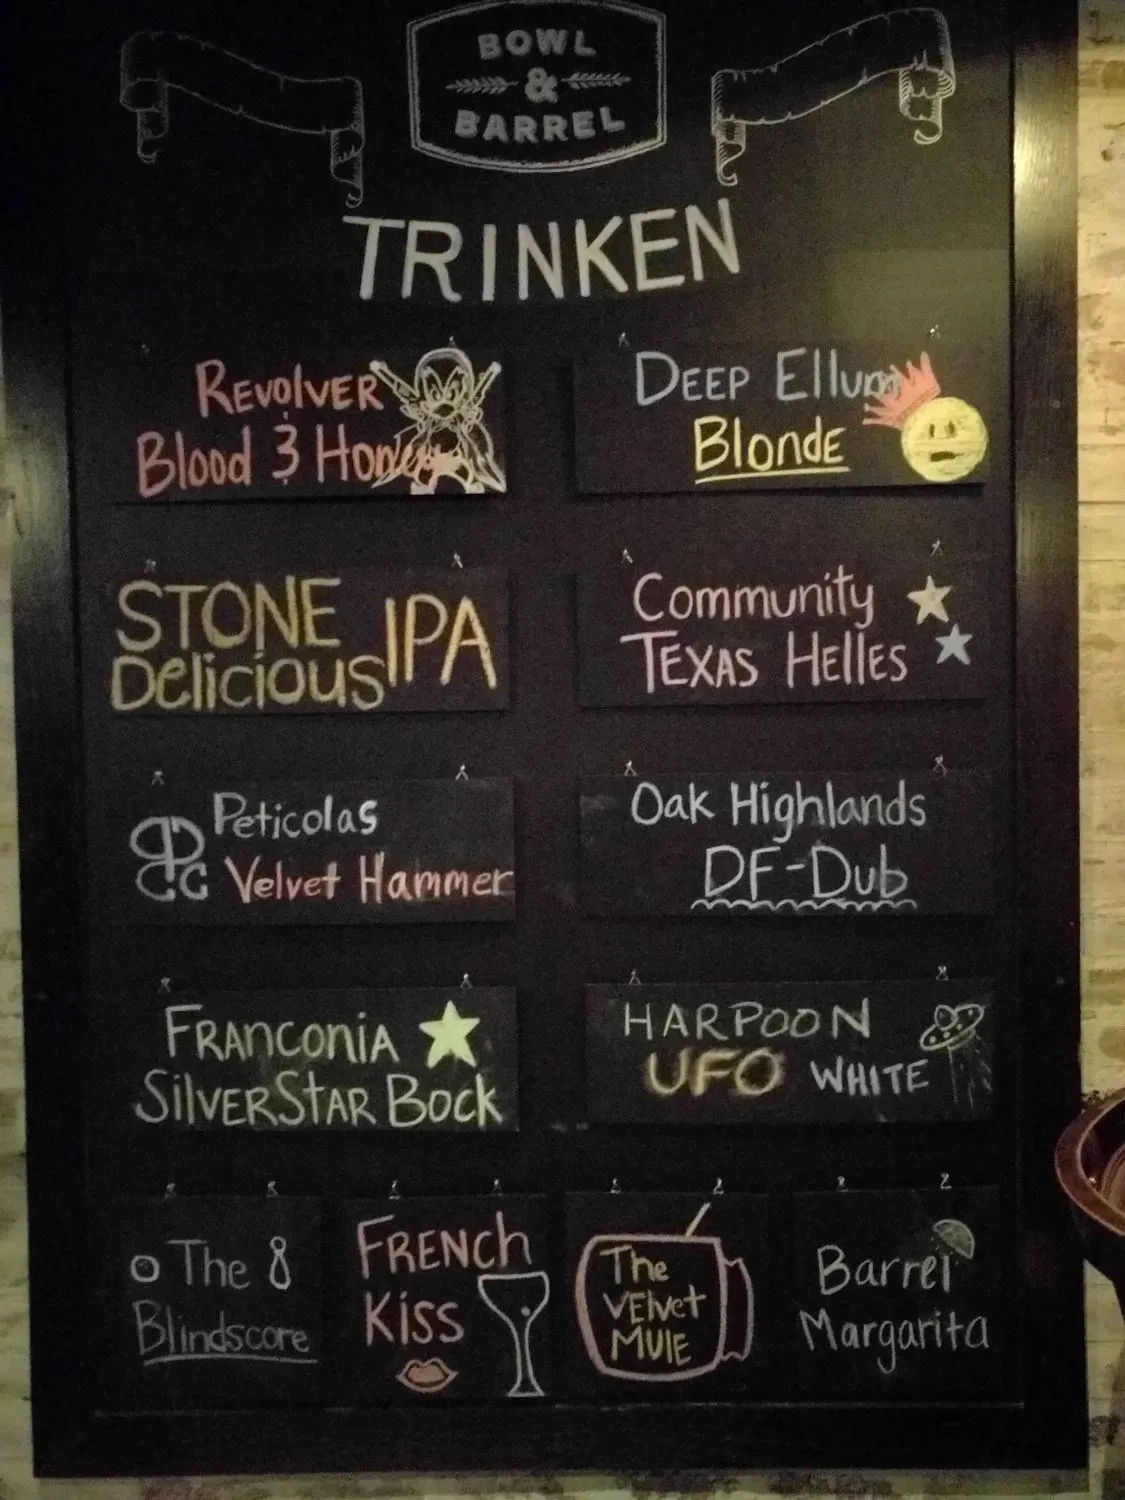 BOWL
&
BARREL
TRINKEN
REVOLVER
Blood & Honey
DEEP Ellum
Blonde
STONE
Delicious IPA
Community
TEXAS HELLES
Peticolas
Velvet Hammer
Oak Highlands
DF-Dub
FRANCONIA
SILVERSTAR BOCK
HARPOON
UFO WHITE
The
Blindscore
FRENCH
KISS
The
VElvet
MULE
Barrel
Margarita